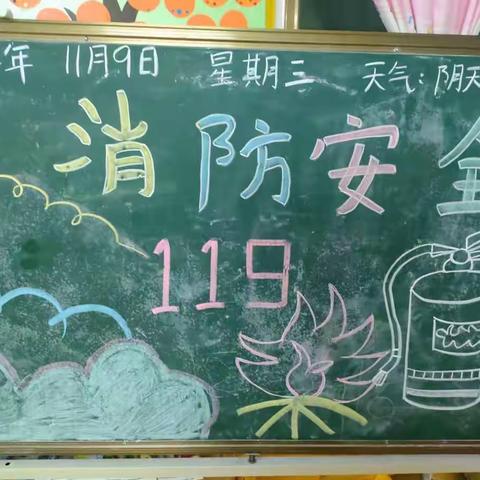 年 11月9日 星期三 天气:阴天
消防安全
119